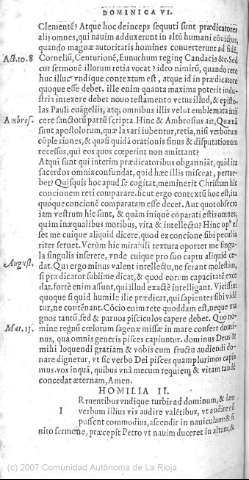 DOMINICA VI.
Clementē! Atque hoc deinceps sequuti sunt prædicatores
alij omnes, qui nauim adduxerunt in altū humani cōuictus,
quando magnæ autoritatis homines conuerterunt ad fidē,
Acto. 8 Corneliū, Centurionē, Eunuchum reginę Candacis &c. Sed
en sermonē illorum retia vocat? ideo nimirū, quando rete
huc illucq́; vndique contextum est, atque id in prædicatore
quoque esse debet. ille enim quanta maxima poterit indu-
stria innexere debet nouo testamento vetus illud, & episto-
las Pauli euāgelijs, atq; omnibus illis velut emblemata ijs-
Ambros. cere sanctorū patrū scripta. Hinc & Ambrosius ait, Quæ
sunt apostolorum, quæ laxari iubentur, retia, nisi verborum
cōplexiones, & quasi quidā orationis sinus & disputationum
recessus, qui eos quos coeperint non amittant?
At qui sunt qui interim prædicatoribus obganniāt, quid ita
sacerdos omnia confundat, quid hæc illis misceat, pertur-
bet? Quisquis hoc apud se cogitat, meminerit Christum hic
concionem reti comparare. sicut ergo contextū hoc est, ita
quoque concionē comparatam esse decet. Aut quot obsecro
iam vestrûm hic sunt, & quàm iniquè coparati estis omnes,
quàm inæqualibus moribus, vita & intellectu? Hinc op
let me cuique aliquid dicere, quod ex concione sibi peculia-
riter seruet. Verùm hic mirabili textura oportet me singu-
la singulis inserere, vnde cuique pro suo captu aliquid ce-
August. dat. Qui ergo minus valent intellectu, ne ferant molestè,
si prædicator sublimè dicat, & quod eorum capacitatē exce-
dat. fortè enim assunt, qui illud exactè intelligant. Vicissim
quoque si quid humile ille prædicat, qui sapientes sibi vidē-
tur, ne contēnant. Cōcio enim rete quoddam est, neque ma-
gnos tantū sed & paruos pisciculos capere debet. Quo no-
Mat. 13. mine regnū cœlorum sagenæ missæ in mare confert domi-
nus, qua omnis generis pisces capiuntur. dominus Deus &
mihi loquendi gratiam & vobis cum fructu audiendi do-
nare dignetur, vt sic verbo Dei pisces quamplurimos capia-
mus. vos inquā, quibus vnà mecum requiem & vitam tandē
concedat æternam, Amen.
HOMILIA II.
IRruentibus vndique turbis ad dominum, & lon
verbum illius vix audire valētibus, vt audire id
possent commodius, ascendit in nauiculam & fi-
nito sermone, præcepit Petro vt nauim duceret in altum, &
(c) 2007 Comunidad Autónoma de La Rioja